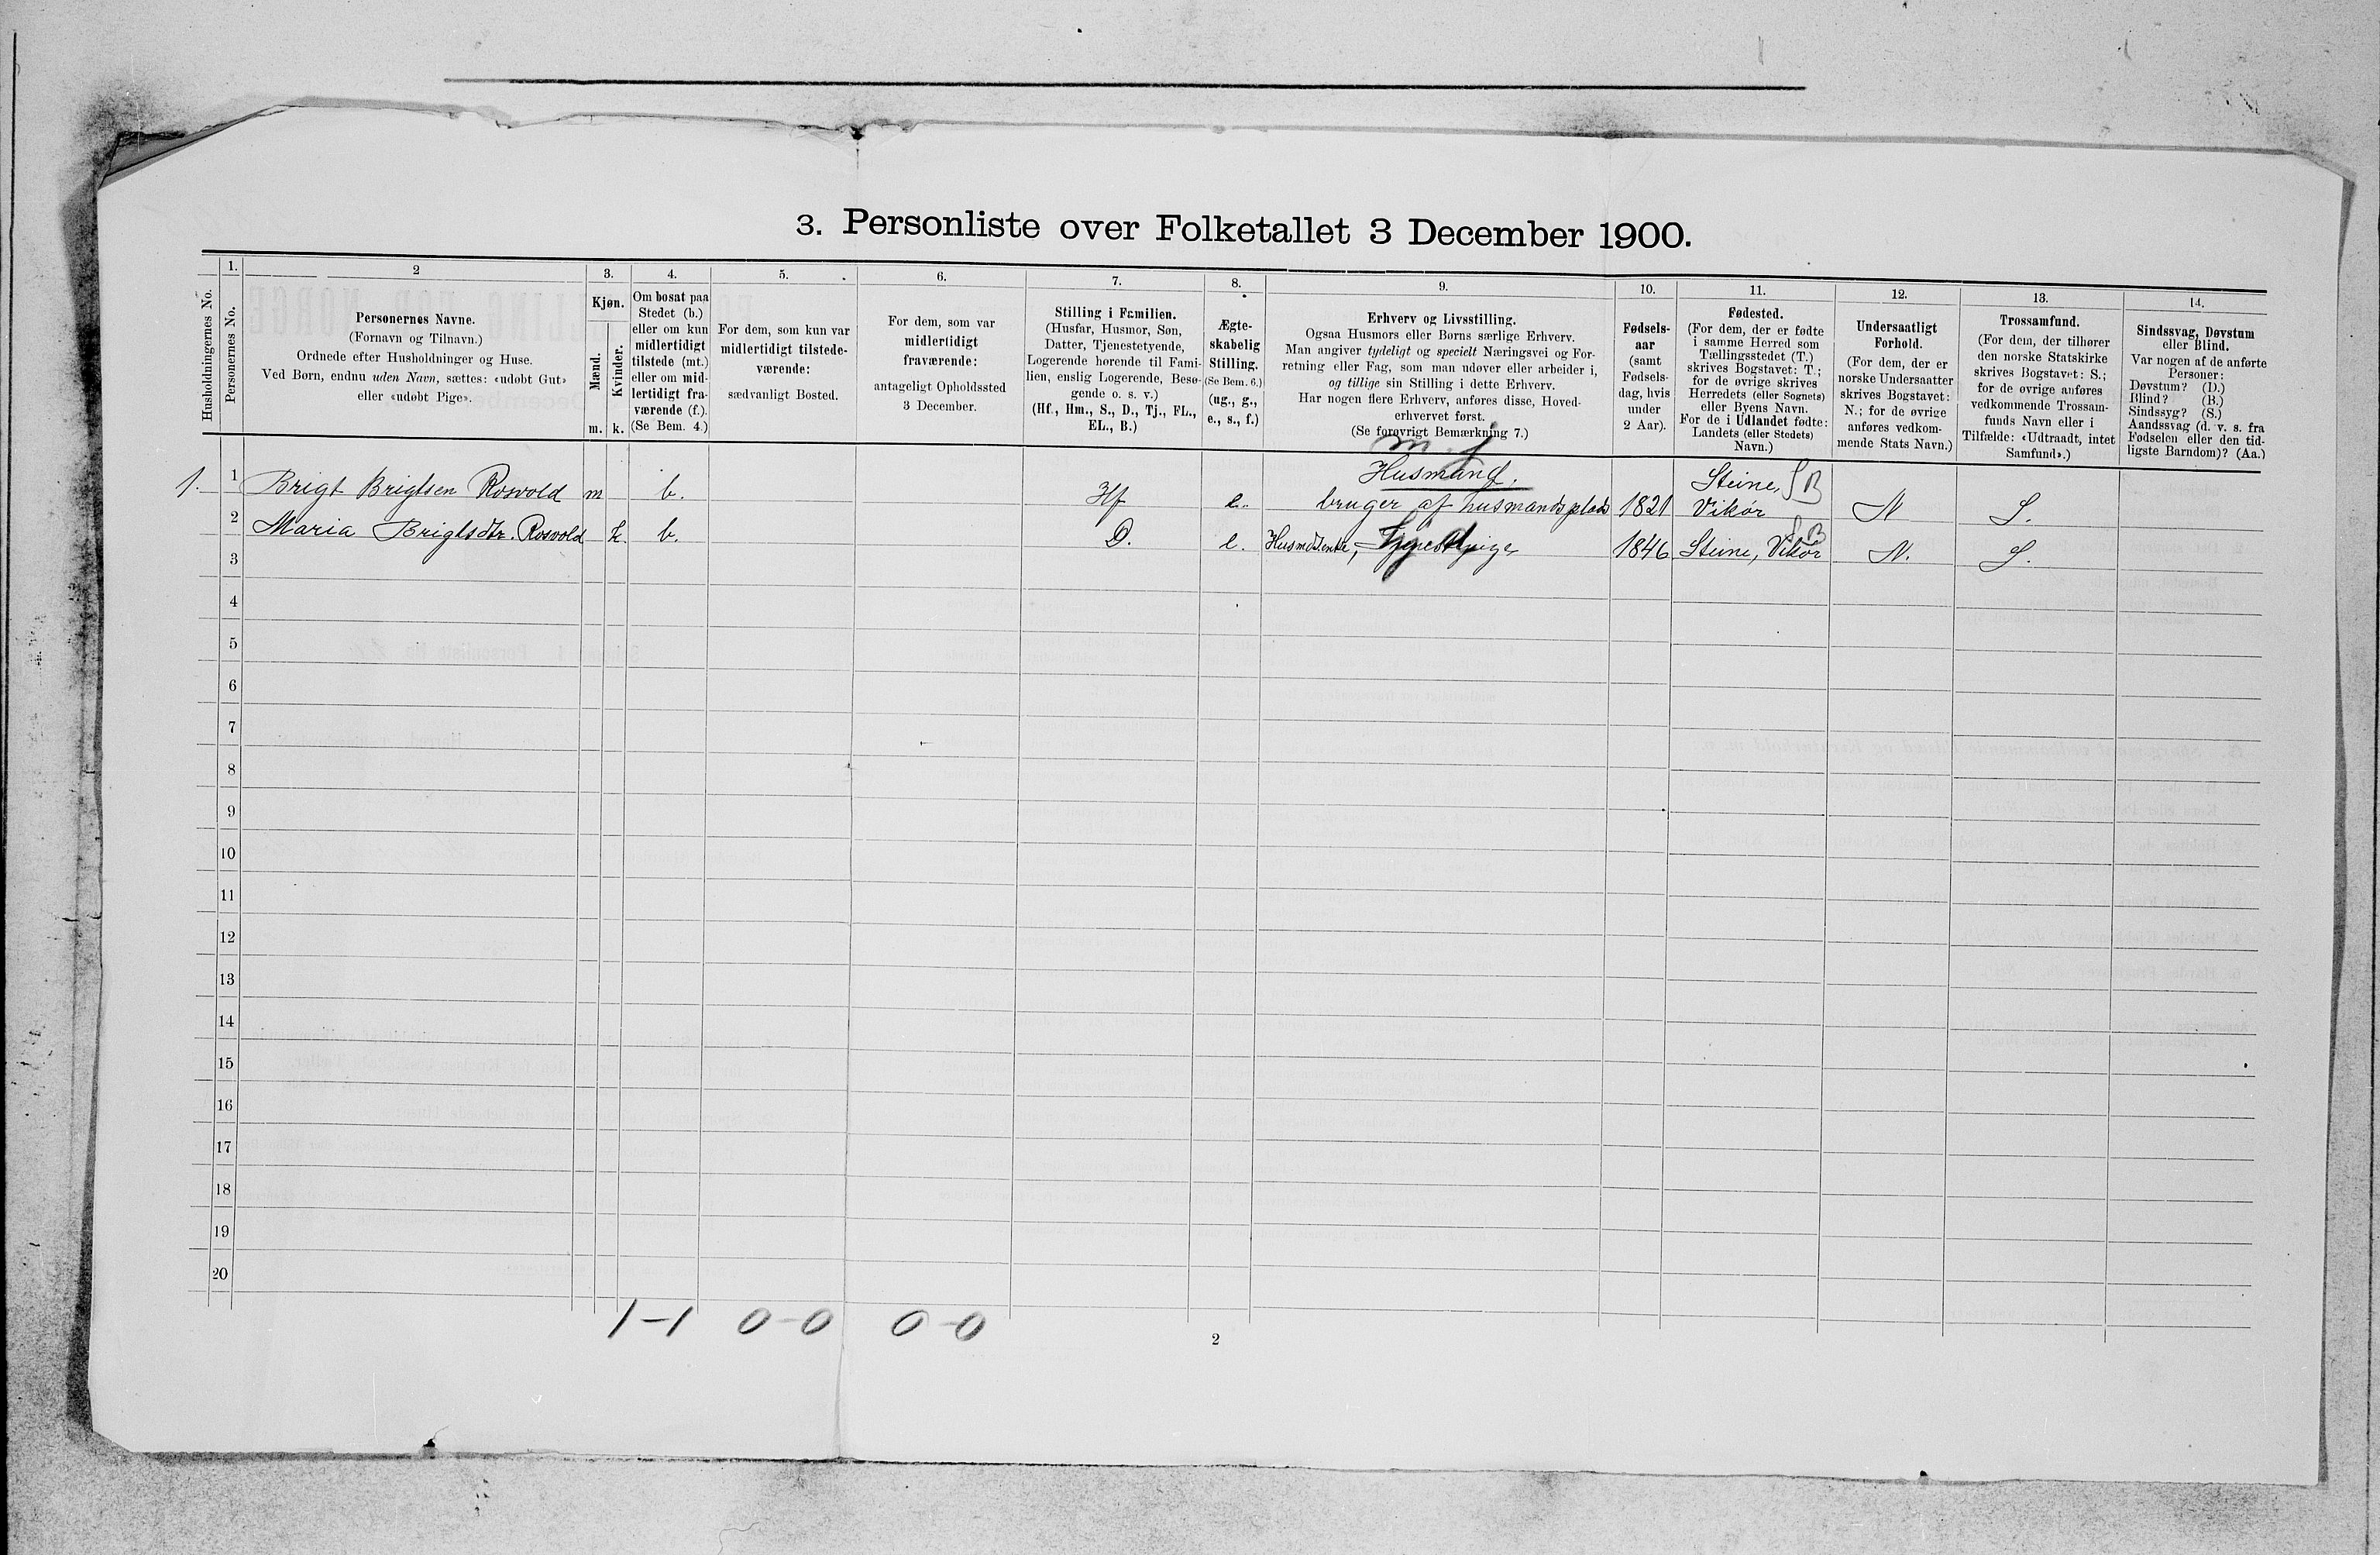 3. Personliste over Folketallet 3 December 1900.
Husholdningernes No.
1.
Personernes No.
2
Personernes Navne.
(Fornavn og Tilnavn.)
Ordnede efter Husholdninger og Huse.
Ved Børn, endnu uden Navn, sættes: «udøbt Gut»
eller «udøbt Pige».
3.
Kjøn.
Mænd.
Kvinder.
m. k.
4.
Om bosat paa
Stedet (b.)
eller om kun
midlertidigt
tilstede (mt.)
eller om mid-
lertidigt fra-
værende (f.).
(Se Bem. 4.)
5.
For dem, som kun var
midlertidigt tilstede-
værende:
sædvanligt Bosted.
6.
For dem, som var
midlertidigt
fraværende:
antageligt Opholdssted
3 December.
7.
Stilling i Familien.
(Husfar, Husmor, Søn,
Datter, Tjenestetyende,
Logerende hørende til Fami-
lien, enslig Logerende, Besø-
gende o. s. v.)
(Hf., Hm., S., D., Tj., FL.,
EL., B.)
8.
Ægte-
skabelig
Stilling.
(Se Bem. 6.)
(ug., g.,
e., s., f.)
9.
Erhverv og Livsstilling.
Ogsaa Husmors eller Børns særlige Erhverv.
Man angiver tydeligt og specielt Næringsvei og For-
retning eller Fag, som man udøver eller arbeider i,
og tillige sin Stilling i dette Erhverv.
Har nogen flere Erhverv, anføres disse, Hoved-
erhvervet først.
(Se forøvrigt Bemærkning 7.)
10.
Fødsels-
aar
(samt
Fødsels-
dag, hvis
under
2 Aar).
11.
Fødested.
(For dem, der er fødte
i samme Herred som
Tællingsstedet (T.)
skrives Bogstavet: T.;
for de øvrige skrives
Herredets (eller Sognets)
eller Byens Navn.
For de i Udlandet fødte:
Landets (eller Stedets)
Navn.)
12.
Undersaatligt
Forhold.
(For dem, der er
norske Undersaatter
skrives Bogstavet:
N.; for de øvrige
anføres vedkom-
mende Stats Navn.)
13.
Trossamfund.
(For dem, der tilhører
den norske Statskirke
skrives Bogstavet: S.;
for de øvrige anføres
vedkommende Trossam-
funds Navn eller i
Tilfælde: «Udtraadt, intet
Samfund».)
14.
Sindssvag, Døvstum
eller Blind.
Var nogen af de anførte
Personer:
Døvstum? (D.)
Blind? (B.)
Sindssyg? (S.)
Aandssvag (d. v. s. fra
Fødselen eller den tid-
ligste Barndom)? (Aa.)
m. j
Husmand. Steine, SB
1. 1 Brigt Brigtsen Rosvold m b. Hf e. bruger af husmandsplads 1821 Vikør N S.
2 Maria Brigtsdtr. Rosvold k. b. D. e. 1846 Steine, Vikør SB N. S.
3
4
5
6
7
8
9
10
11
12
13
14
15
16
17
18
19
20
1-1 0-0 0-0
2